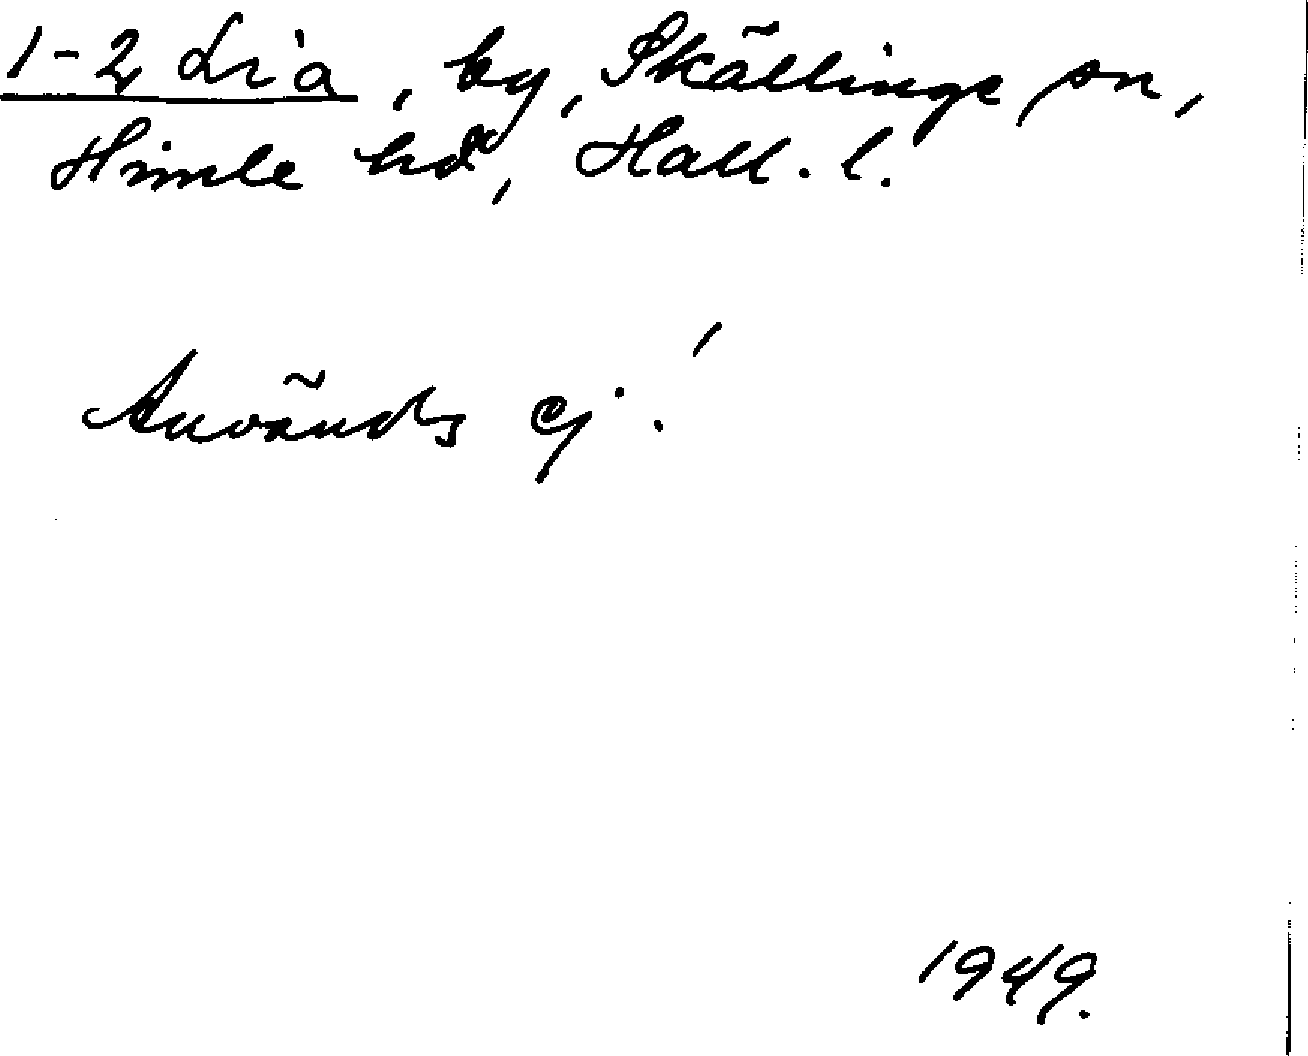 1-2 Lia, by, Skällinge sn,
Himle hd, Hall. l.
Används ej!
1949.